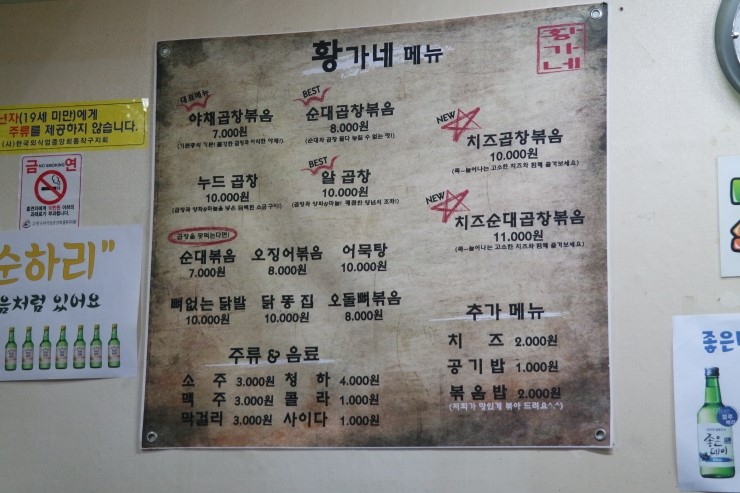 황가네 메뉴
황가네
대표메뉴
야채곱창볶음
7.000원
BEST
순대곱창볶음
8.000원
(순대와 곱창 둘다 놓칠 수 없는 맛!)
NEW
치즈곱창볶음
10.000원
(쭉~늘어나는 고소한 치즈와 함께 즐겨보세요)
누드 곱창
10.000원
BEST
알 곱창
10.000원
NEW
치즈순대곱창볶음
11.000원
(쭉~늘어나는 고소한 치즈와 함께 즐겨보세요)
곱창을 못먹는다면!
순대볶음
7.000원
오징어볶음
8.000원
어묵탕
10.000원
뼈없는 닭발
10.000원
닭 똥 집
10.000원
오돌뼈볶음
8.000원
주류 & 음료
소 주 3.000원 청 하 4.000원
맥 주 3.000원 콜 라 1.000원
막걸리 3.000원 사이다 1.000원
추가 메뉴
치 즈 2.000원
공 기 밥 1.000원
볶 음 밥 2.000원
(저희가 맛있게 볶아 드려요^.^)
년자(19세 미만)에게
주류를 제공하지 않습니다.
(사)한국외식업중앙회동작구지회
금 연
NO SMOKING
순하리"
음처럼 있어요
좋은
좋은
데이